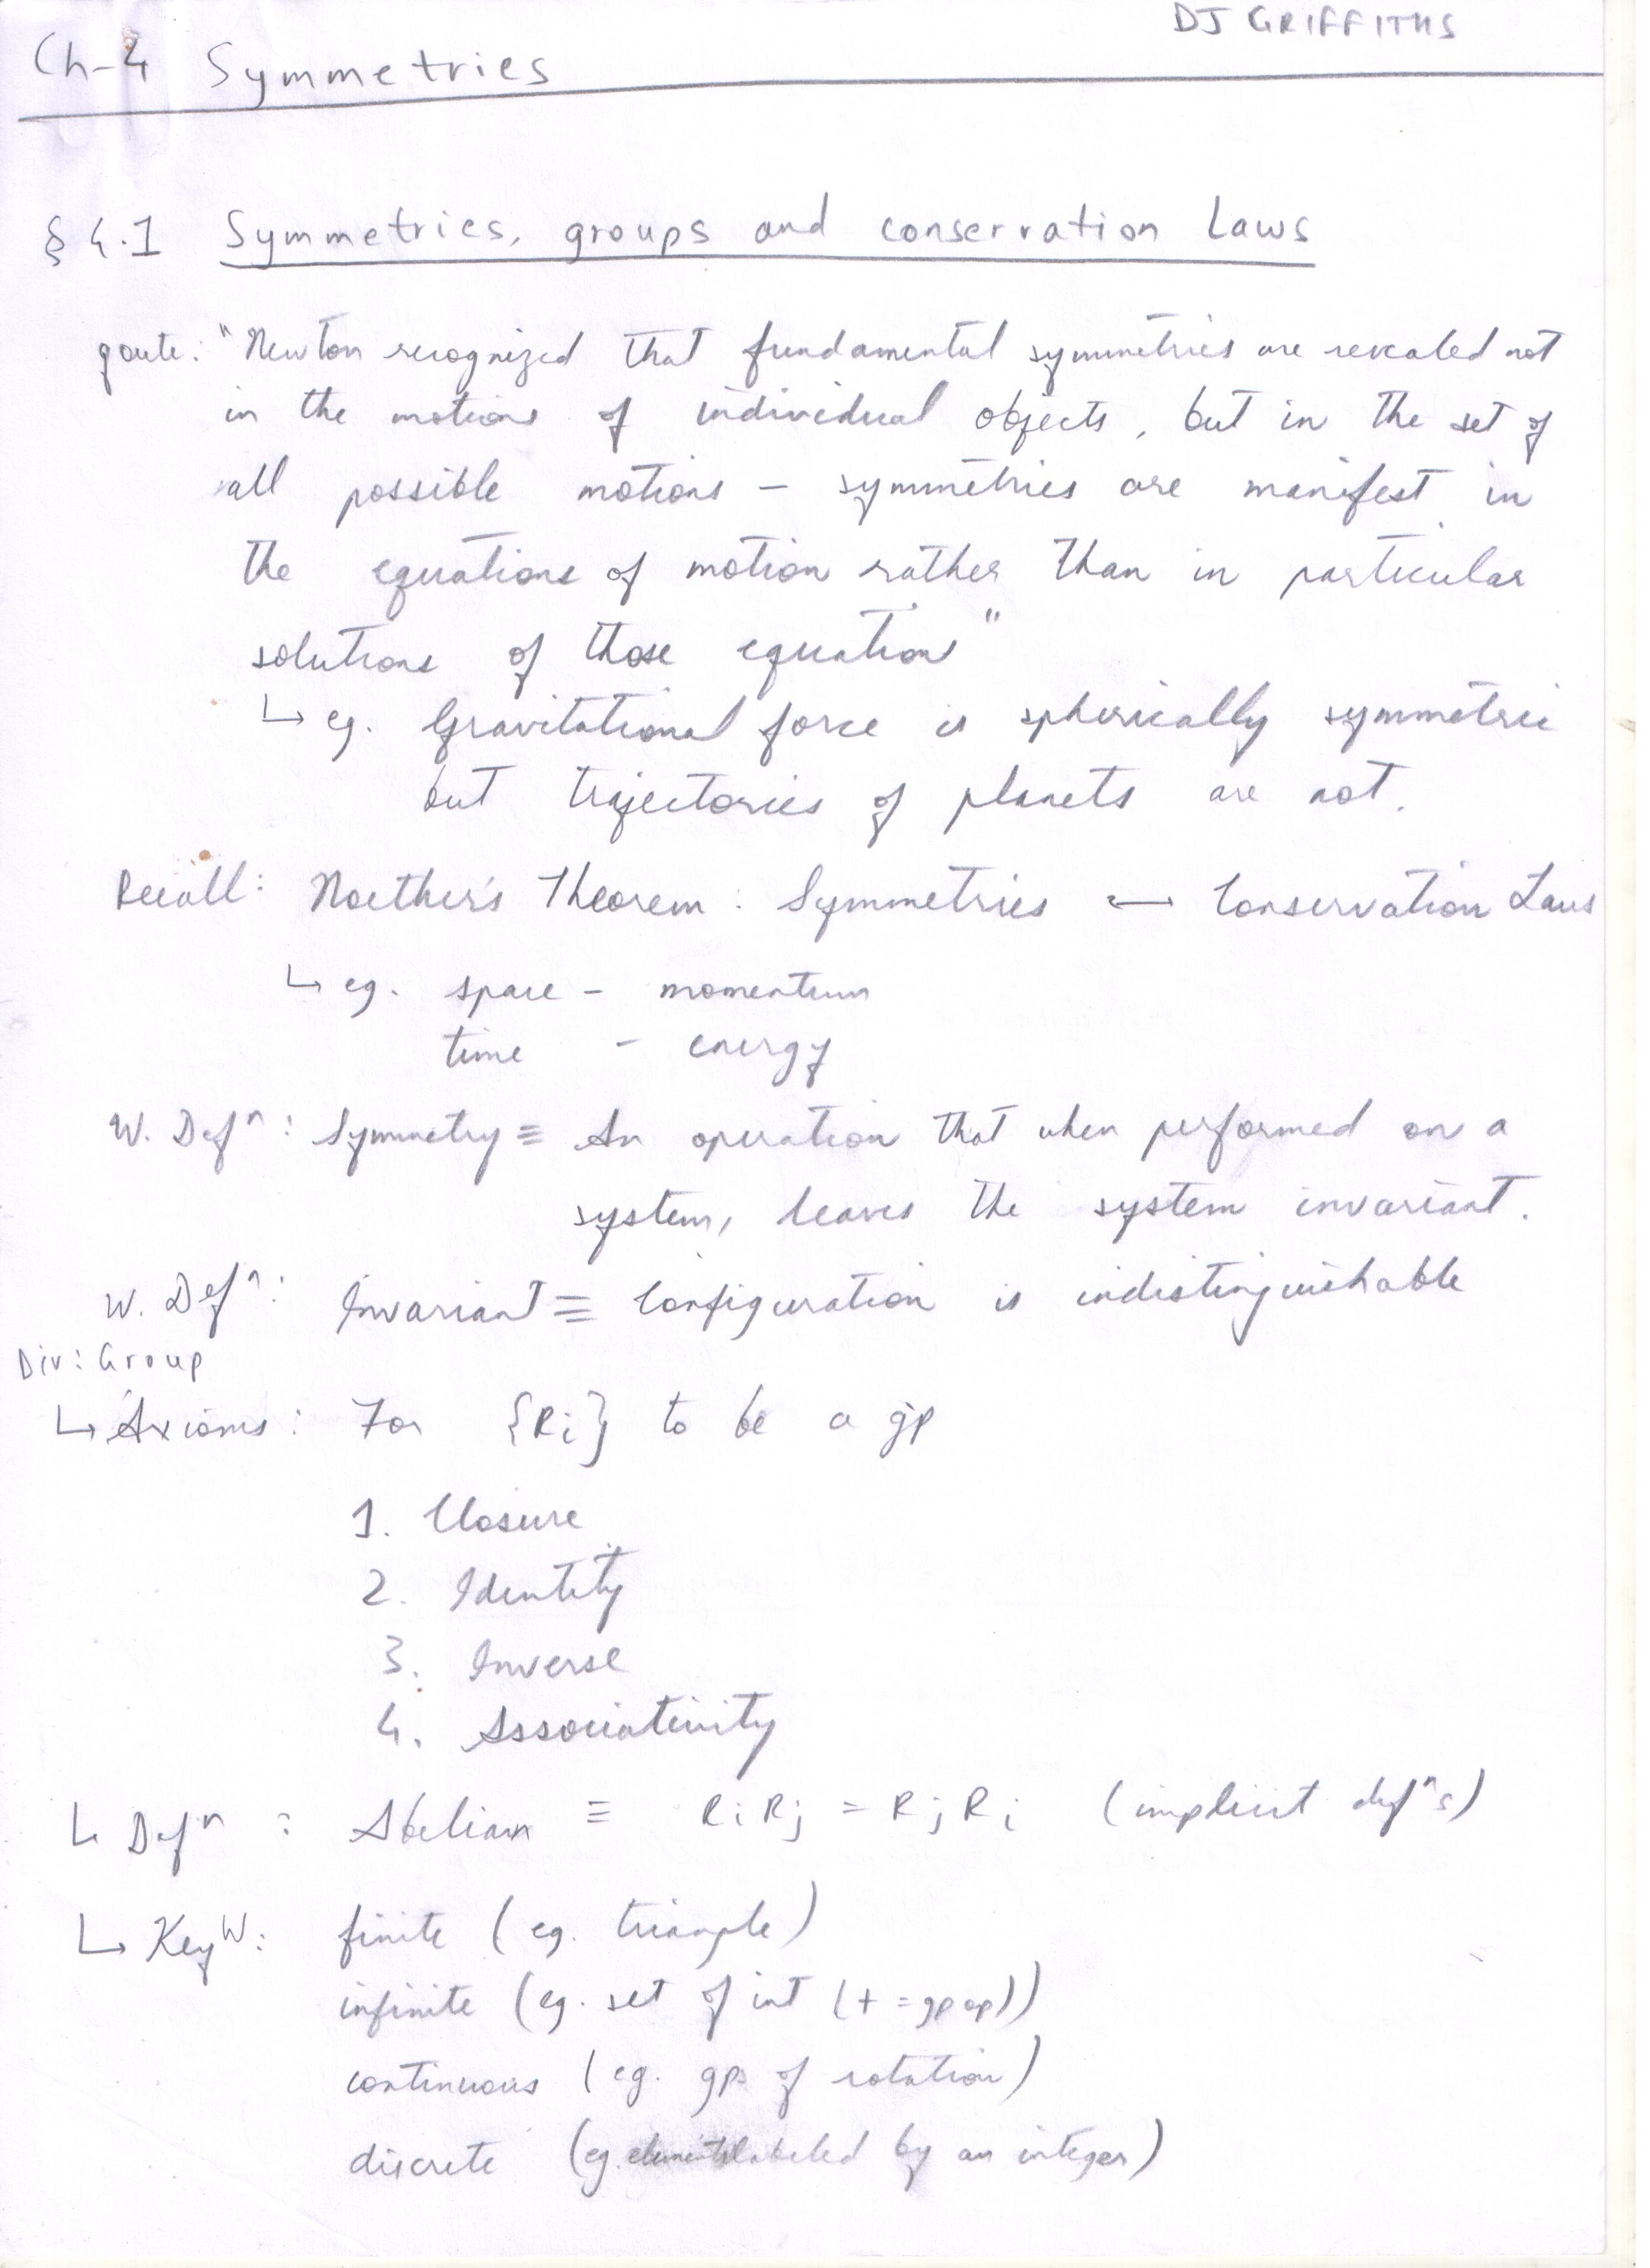 DJ GRIFFITHS
Ch-4 Symmetries
§ 4.1 Symmetries, groups and conservation Laws
qoute: "Newton recognized that fundamental symmetries are revealed not
in the motions of individual objects, but in the set of
all possible motions – symmetries are manifest in
the equations of motion rather than in particular
solutions of those equations"
↳ eg. Gravitational force is spherically symmetric
but trajectories of planets are not.
Recall: Noether's Theorem : Symmetries ⟷ Conservation Laws
↳ eg. space – momentum
time – energy
W. Defⁿ : Symmetry ≡ An operation that when performed on a
system, leaves the system invariant.
W. Defⁿ : Invariant ≡ Configuration is indistinguishable
Div: Group
↳ Axioms : For {Ri} to be a gp
1. Closure
2. Identity
3. Inverse
4. Associativity
↳ Defⁿ : Abelian ≡ RiRj = RjRi (implicit defⁿs)
↳ Keyᵂ: finite (eg. triangle)
infinite (eg. set of int (+ = gp op))
continuous (eg. gp of rotation)
discrete (eg. elements labeled by an integer)